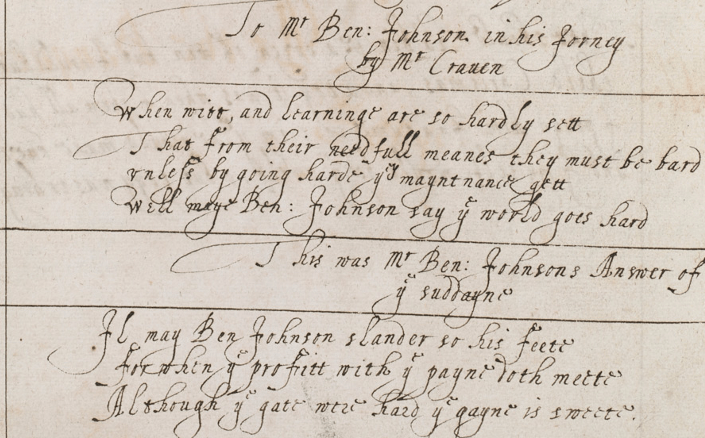 To Mr Ben: Johnson in his Jorney
by Mr Craven
When witt, and learninge are so hardly sett
That from their needfull meanes they must be bard
vnless by going harde yt mayntnance gett
Well maye Ben: Johnson say ye world goes hard
This was Mr Ben: Johnsons Answer of
ye suddayne
Il may Ben Johnson slander so his feete
for when ye profitt with ye payne doth meete
Although ye gate were hard ye gayne is sweete.